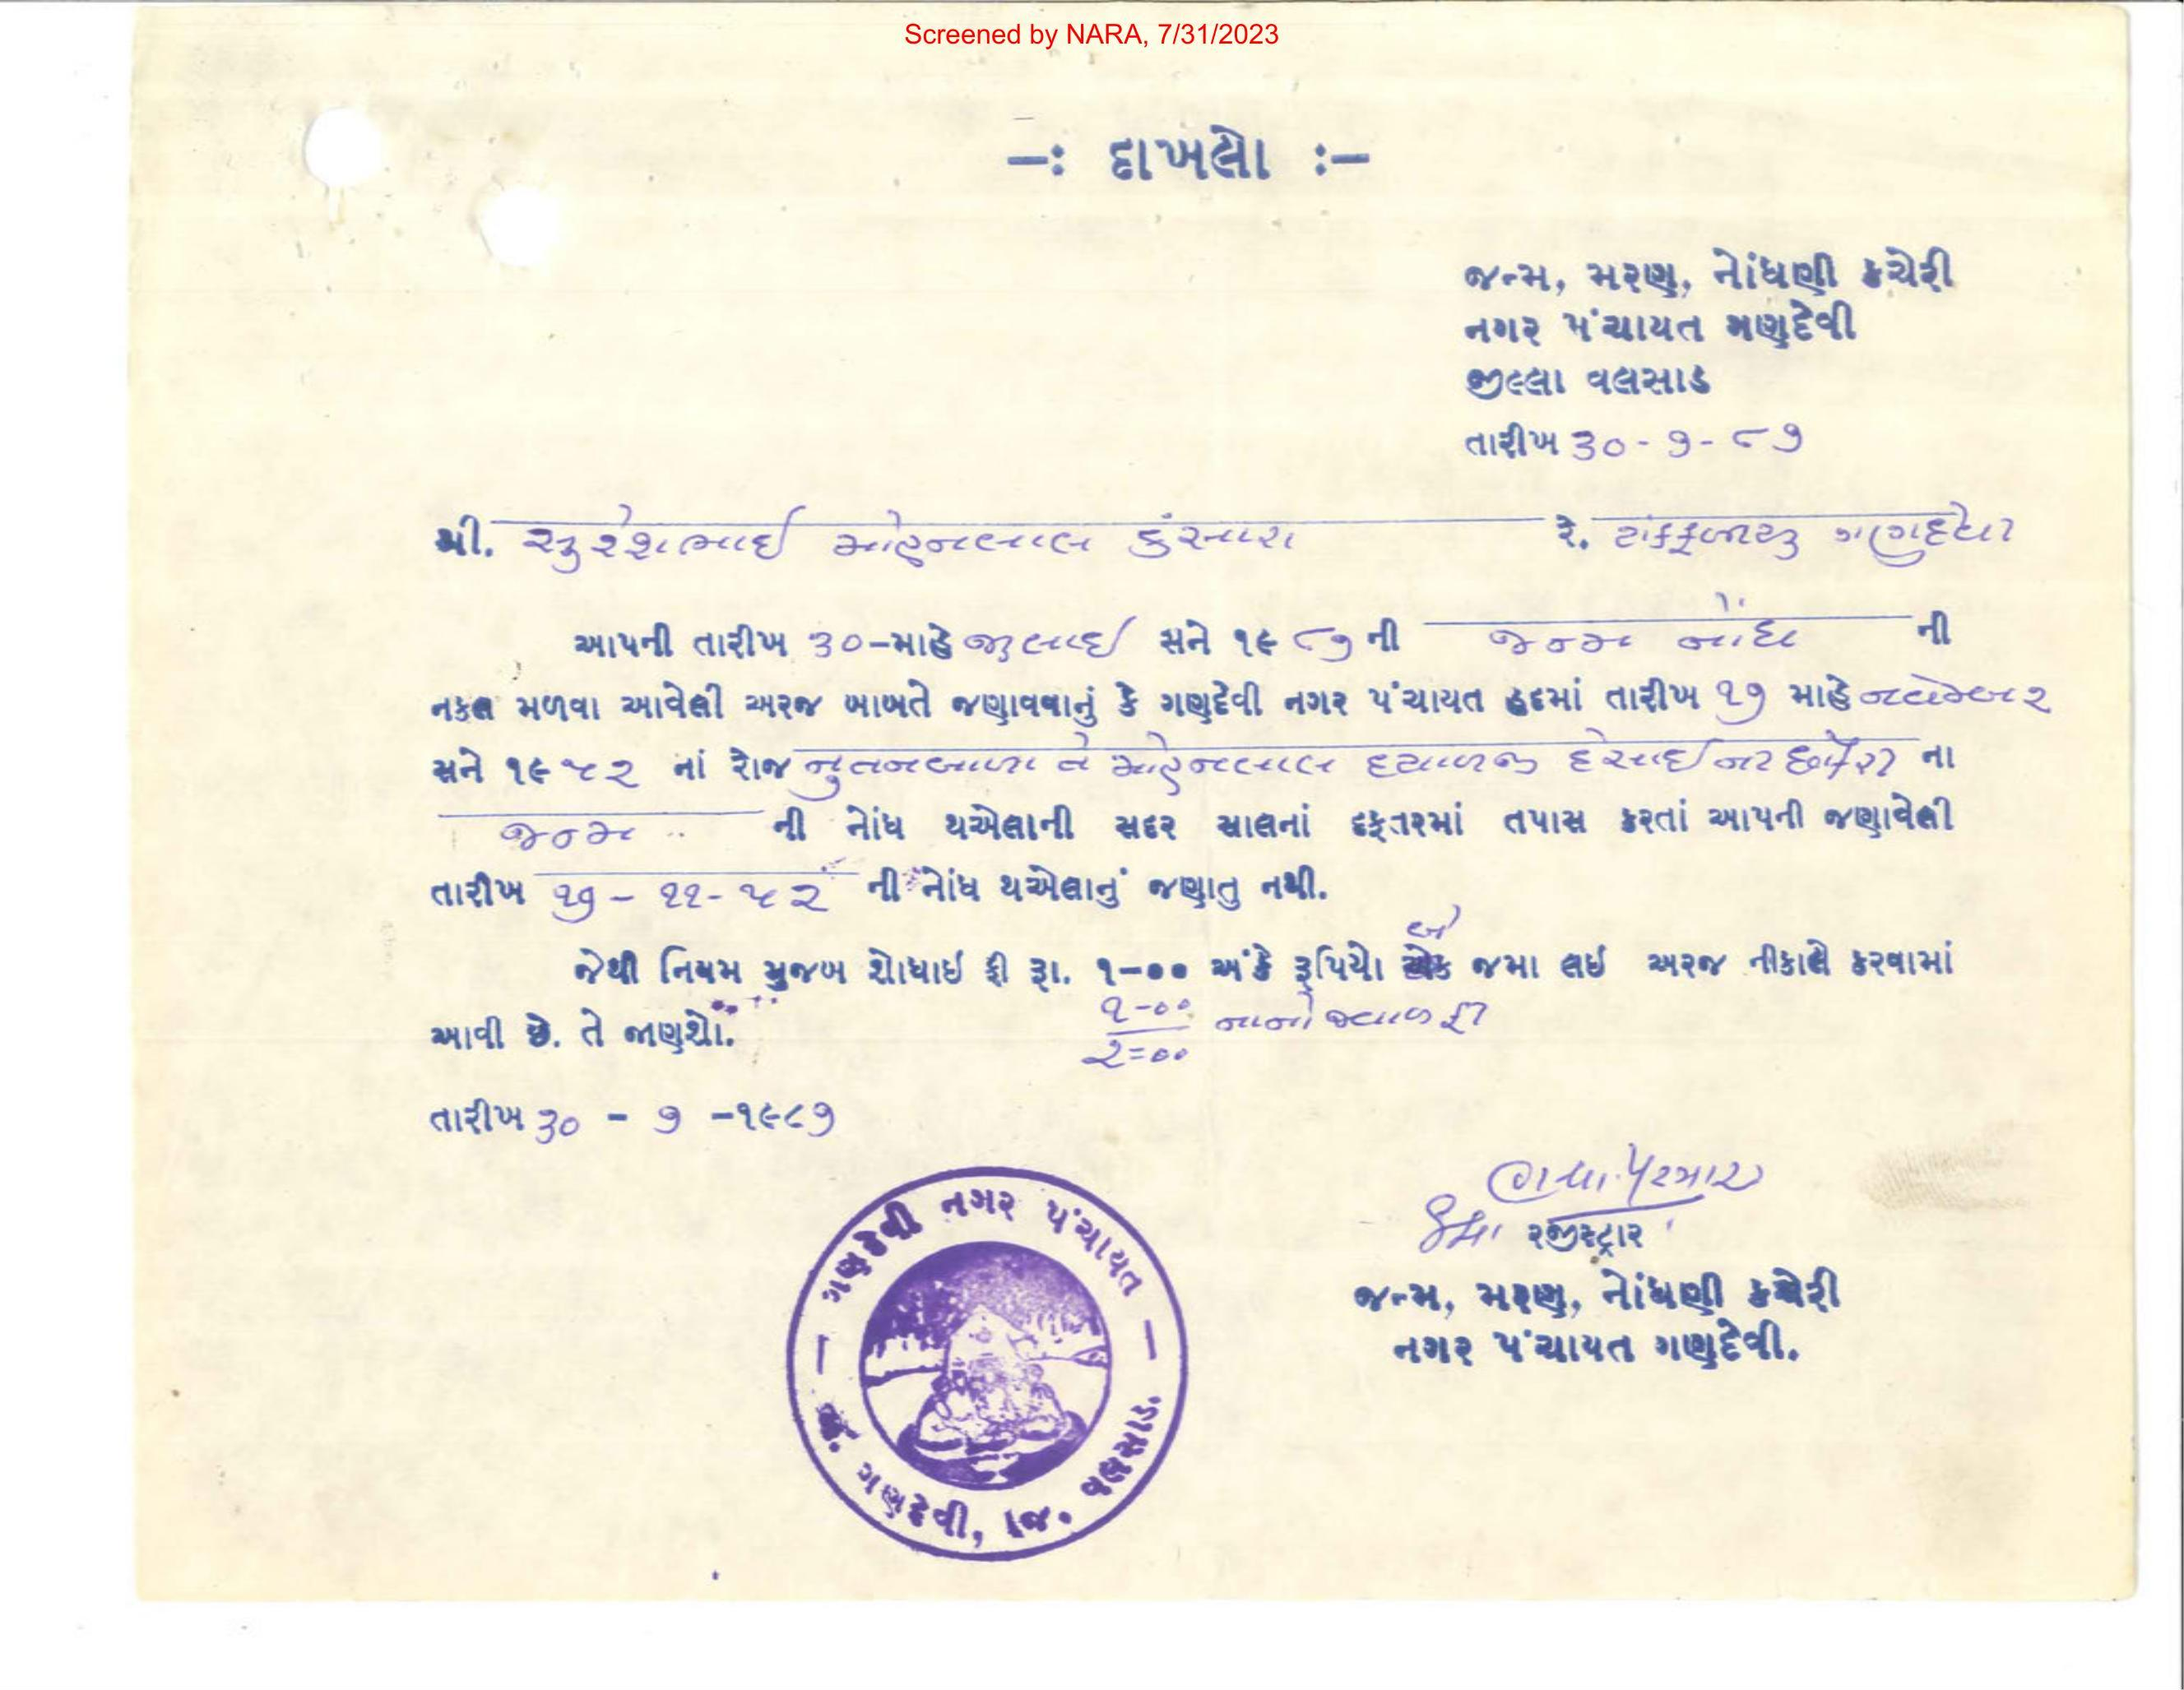 Screened by NARA, 7/31/2023
—: દાખલો :—
જન્મ, મરણ, નોંધણી કચેરી
નગર પંચાયત ગણદેવી
જીલ્લા વલસાડ
તારીખ ૩૦-૭-૮૭
શ્રી. સુરેશભાઈ મોહનલાલ કંસારા રે. ગણદેવી
આપની તારીખ ૩૦-માહે જુલાઈ સને ૧૯૮૭ ની જન્મ નોંધ ની
નકલ મળવા આવેલી અરજ બાબતે જણાવવાનું કે ગણદેવી નગર પંચાયત હદમાં તારીખ ૧૭ માહે નવેમ્બર
સને ૧૯૫૨ નાં રોજ નુતનબાળા તે મોહનલાલ દયાળજી દેસાઈની છોકરી ના
જન્મ ની નોંધ થએલાની સદર સાલનાં દફતરમાં તપાસ કરતાં આપની જણાવેલી
તારીખ ૧૭-૧૧-૫૨ ની નોંધ થએલાનું જણાતુ નથી.
બે
જેથી નિયમ મુજબ શોધાઇ ફી રૂા. ૧-૦૦ અંકે રૂપિયો એક જમા લઇ અરજ નીકાલે કરવામાં
૧-૦૦
આવી છે. તે જાણશો.
૨=૦૦
તારીખ ૩૦ - ૭ -૧૯૮૭
રજીસ્ટ્રાર
જન્મ, મરણ, નોંધણી કચેરી
નગર પંચાયત ગણદેવી.
ગણદેવી નગર પંચાયત
ગણદેવી, જિ. વલસાડ.